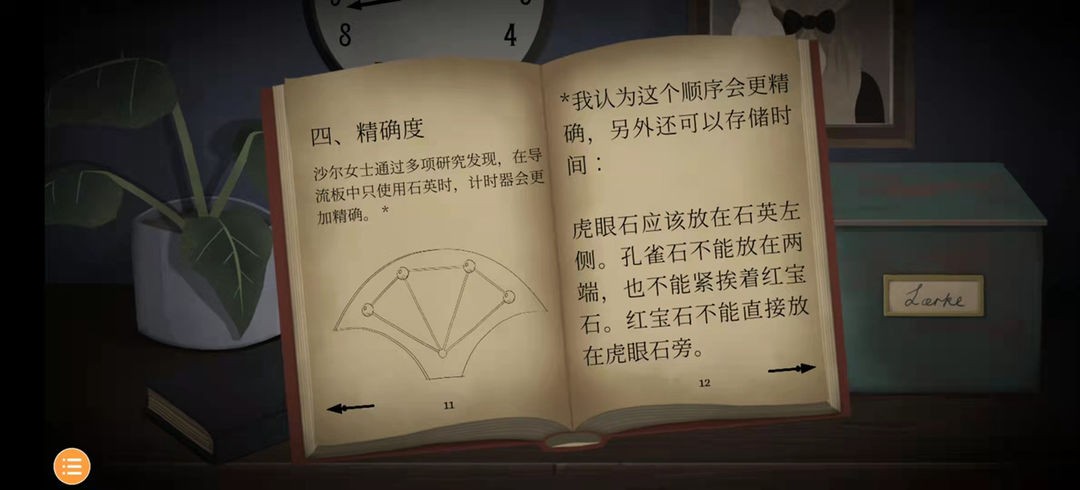 8
4
四、精确度
沙尔女士通过多项研究发现，在导
流板中只使用石英时，计时器会更
加精确。*
11
*我认为这个顺序会更精
确，另外还可以存储时
间：
虎眼石应该放在石英左
侧。孔雀石不能放在两
端，也不能紧挨着红宝
石。红宝石不能直接放
在虎眼石旁。
12
Lærke